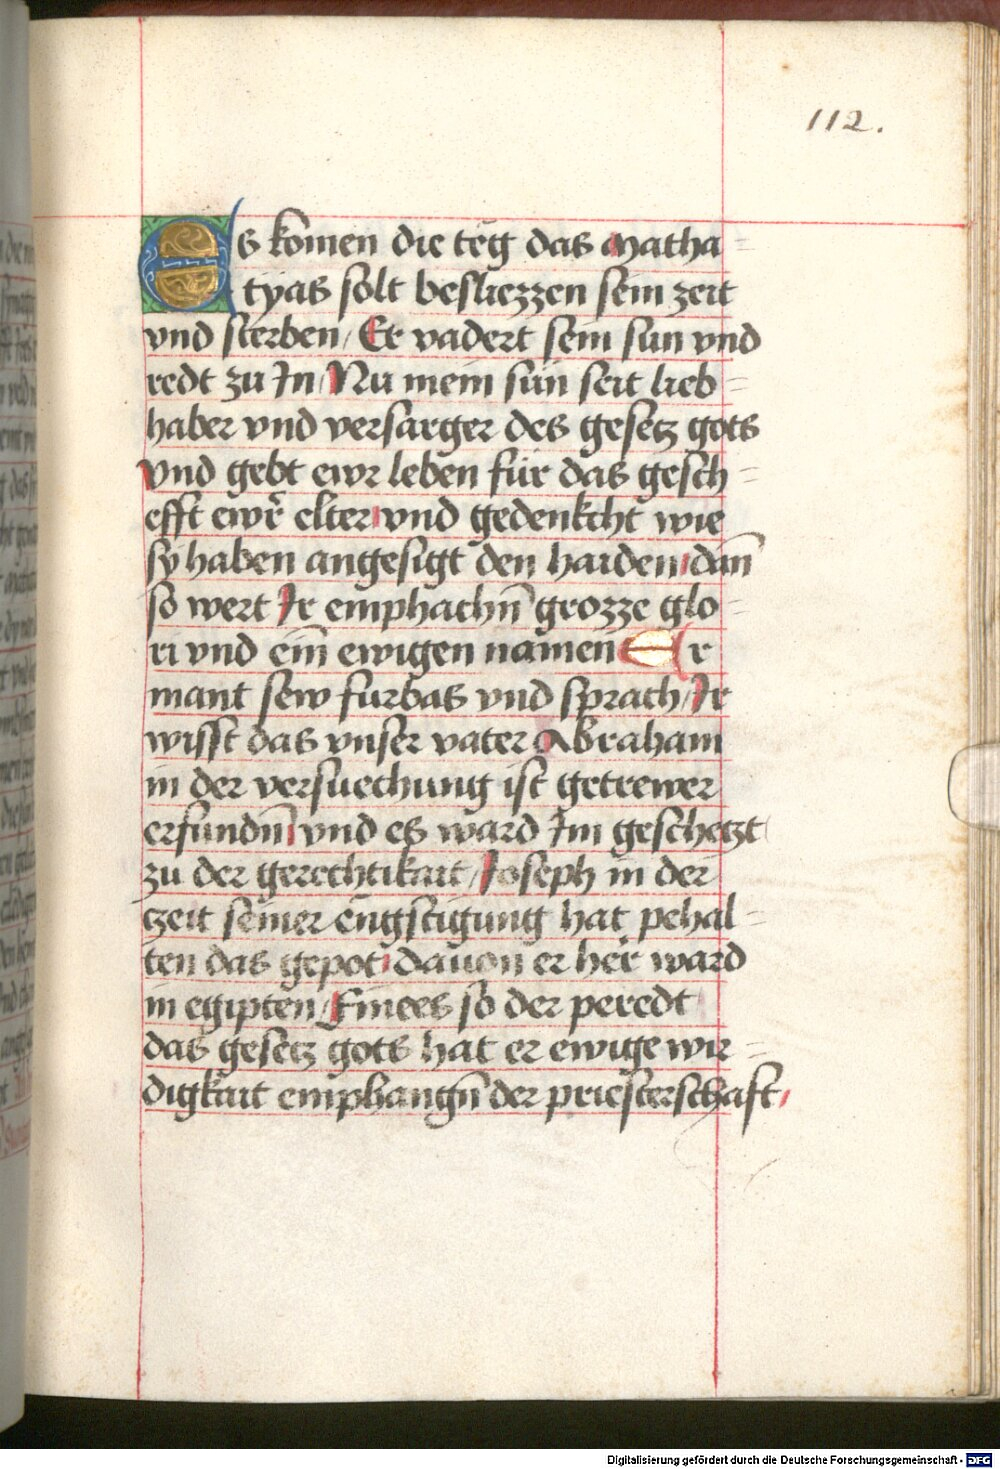 112.
Es komen die teg das Matha=
tyas solt besliezzen sein zeit
vnd sterben / Er vadert sein sun vnd
redt zu In / Nu mein sün seit lieb=
haber vnd versarger des gesetz gots
vnd gebt ewr leben für das gesch=
efft ewr̄ elter vnd gedenkcht wie
sy haben angesigt den haiden dan̄
so wert Ir emphachn̄ grozze glo=
ri vnd ein̄ ewigen namen Er
mant sew furbas vnd sprach / Ir
wisst das vnser vater Abraham
in der versuechung ist getrewer
erfundn̄ vnd es ward Im geschetzt
zu der gerechtikait / Joseph in der
czeit seiner engstigung hat pehal=
ten das gepot dauon er her ward
in egipten / Finees so der peredt
das gesetz gots hat er ewige wir=
digkait emphangn̄ der priesterschaft /
Digitalisierung gefördert durch die Deutsche Forschungsgemeinschaft - DFG